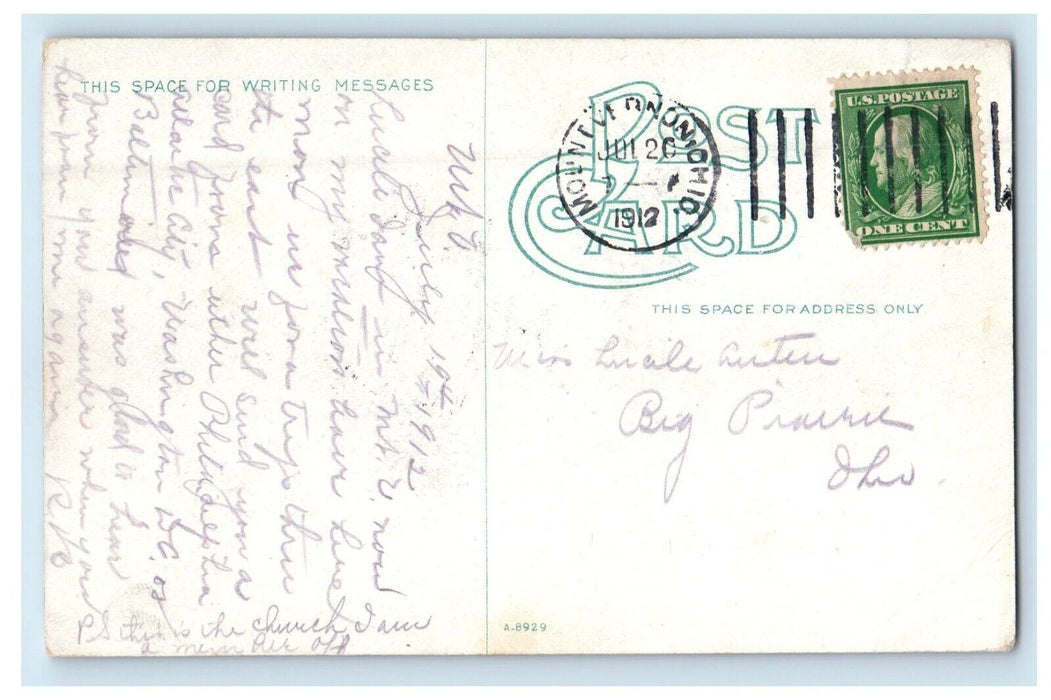 THIS SPACE FOR WRITING MESSAGES
Mt. V.
July 19th 1912
Lucile Dang in Mt. V. now
on my vacation leave here
mon us for a trip thru
the east will send you a
card from either Philadelphia
atlantic City, Washington D.C. or
Baltimore was glad to hear
from you answer when you
hear from me again R B
PS this is the church I am
a member off
POST CARD
MOUNT VERNON, OHIO.
JUL 20
1912
U.S. POSTAGE
ONE CENT
THIS SPACE FOR ADDRESS ONLY
Miss Lucile Auten
Big Prairie
Ohio
A-8929